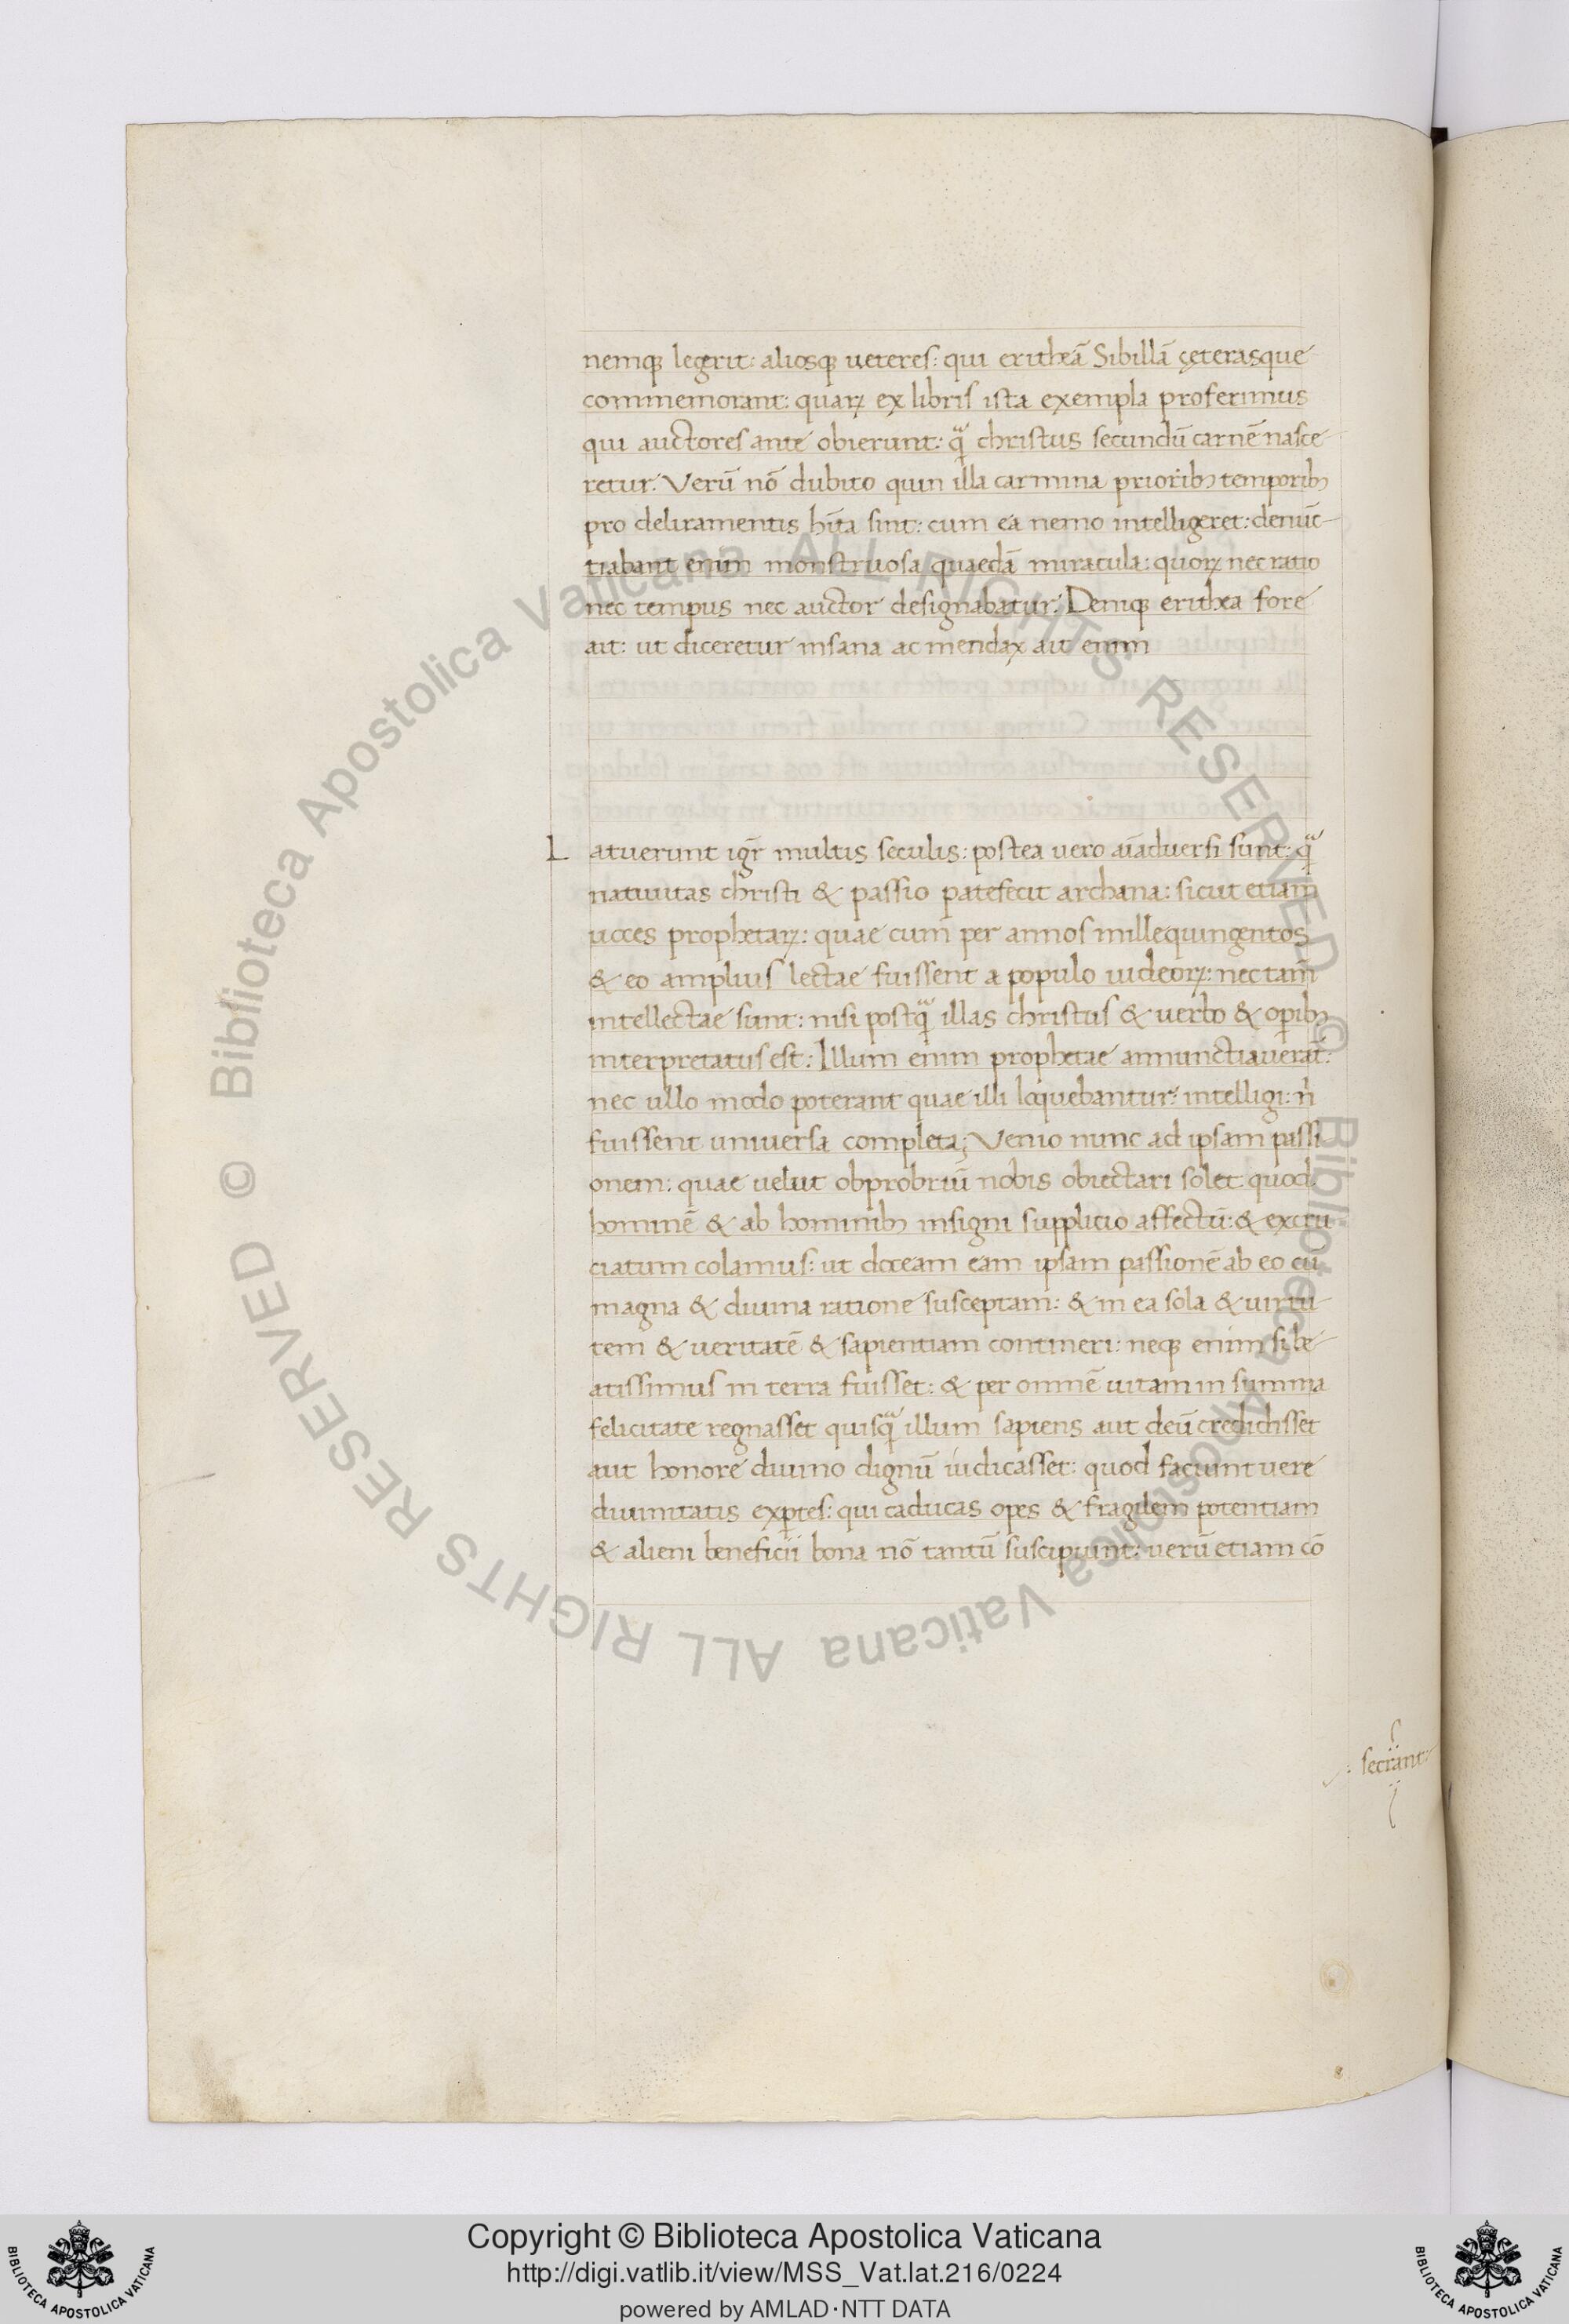 nemq; legerit: aliosq; ueteres: qui eritheā Sibillā çeterasque
commemorant: quaꝝ ex libris ista exempla proferimus
qui auctores ante obierunt: qᷓ christus secundū carnē nasce-
retur. Verū nō dubito quin illa carmina priorib; temporib;
pro deliramentis hīta sint: cum ea nemo intelligeret: denūc-
trabant enim monstruosa quaedā miracula: quoꝝ nec ratio
nec tempus nec auctor designabatur. Deniq; erithea fore
ait: ut diceretur insana ac mendax ait enim
L atuerunt igr̄ multis seculis: postea vero aīaduersi sunt: qᷓ
natiuitas christi & passio patefecit archana: sicut etiam
uoces prophetaꝝ: quae cum per annos millequingentos
& eo amplius lectae fuissent a populo iudeoꝝ: nec tam̄
intellectae sunt: nisi postqᷓ illas christus & verbo & opib;
interpretatus est: Illum enim prophetae annunctiauerāt:
nec ullo modo poterant quae illi loquebantur: intelligi: ń
fuissent universa completa; Venio nunc ad ipsam passi
onem: quae velut obprobriū nobis obiectari solet quod
hominē & ab hominib; insigni supplicio affectū: & excru
ciatum colamus: ut doceam eam ipsam passionē ab eo cū
magna & diuina ratione susceptam: & in ea sola & uirtu-
tem & veritatē & sapientiam contineri: neq; enim si be-
atissimus in terra fuisset: & per omnē uitam in summa
felicitate regnasset quisqᷓ illum sapiens aut deū credidisset
aut honore diuino dignū iudicasset: quod faciunt vere
diuinitatis expertes: qui caducas opes & fragilem potentiam
& alieni beneficii bona nō tantū suscipiunt: verū etiam cō
: secrant:
Copyright © Biblioteca Apostolica Vaticana
http://digi.vatlib.it/view/MSS_Vat.lat.216/0224
powered by AMLAD·NTT DATA
BIBLIOTECA APOSTOLICA VATICANA
BIBLIOTECA APOSTOLICA VATICANA
© Biblioteca Apostolica Vaticana ALL RIGHTS RESERVED
© Biblioteca Apostolica Vaticana ALL RIGHTS RESERVED